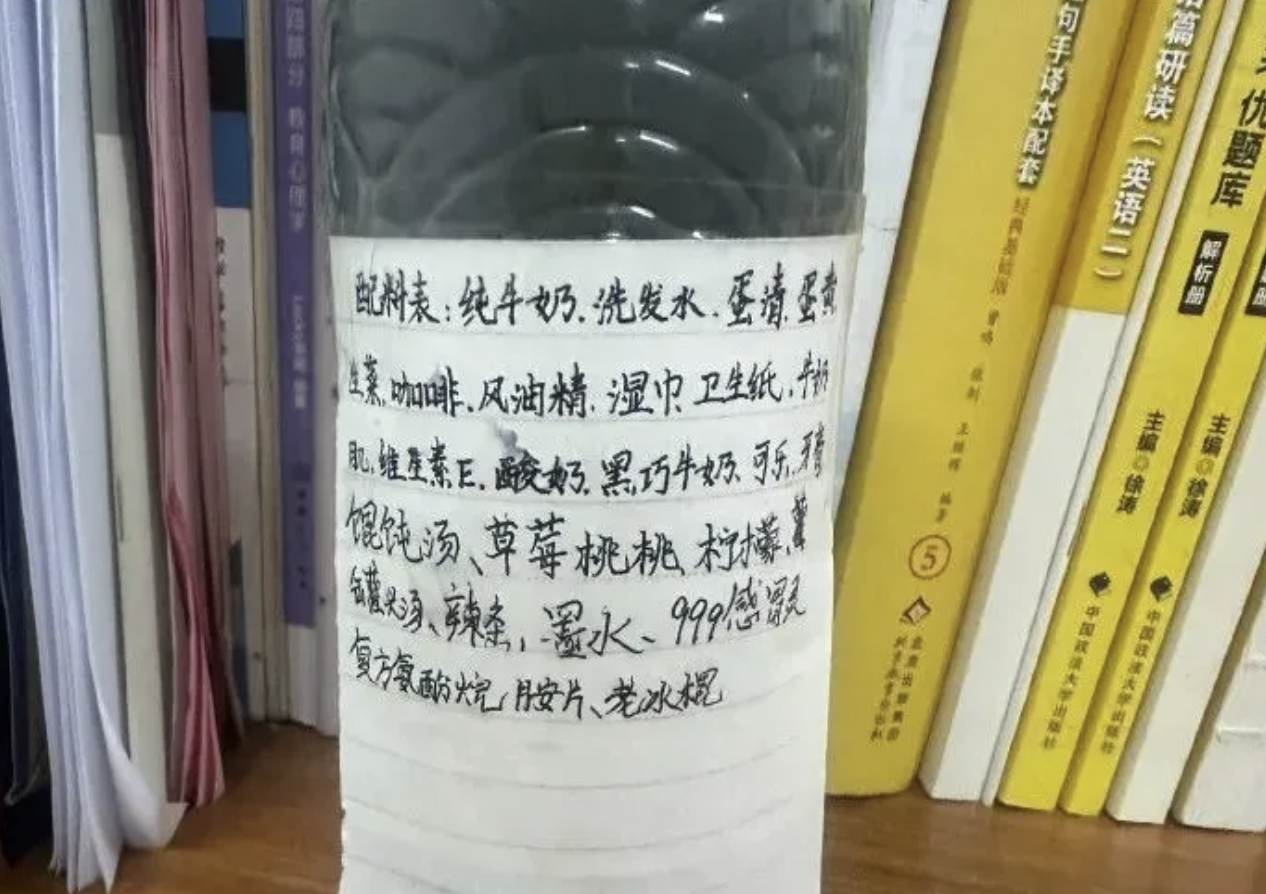 配料表：纯牛奶.洗发水.蛋清.蛋黄
生菜.咖啡.风油精.湿巾.卫生纸.牛奶
肌.维生素E.酸奶.黑巧牛奶.可乐.牙膏
馄饨汤、草莓桃桃、柠檬、薯
罐头汤、辣条，墨水、999感冒灵
复方氨酚烷胺片、老冰棍
句手译本配套
经典基础版
编著
5
语篇研读（英语二）
优题库
解析册
主编◎徐涛
中国政法大学出版社
主编◎徐涛
中国政法大学出版社
教育心理学